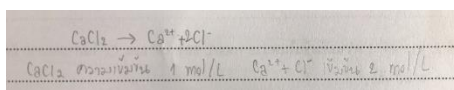 CaCl₂ → Ca²⁺+2Cl⁻
CaCl₂ ความเข้มข้น 1 mol/L Ca²⁺ + Cl⁻ เข้มข้น 2 mol/L